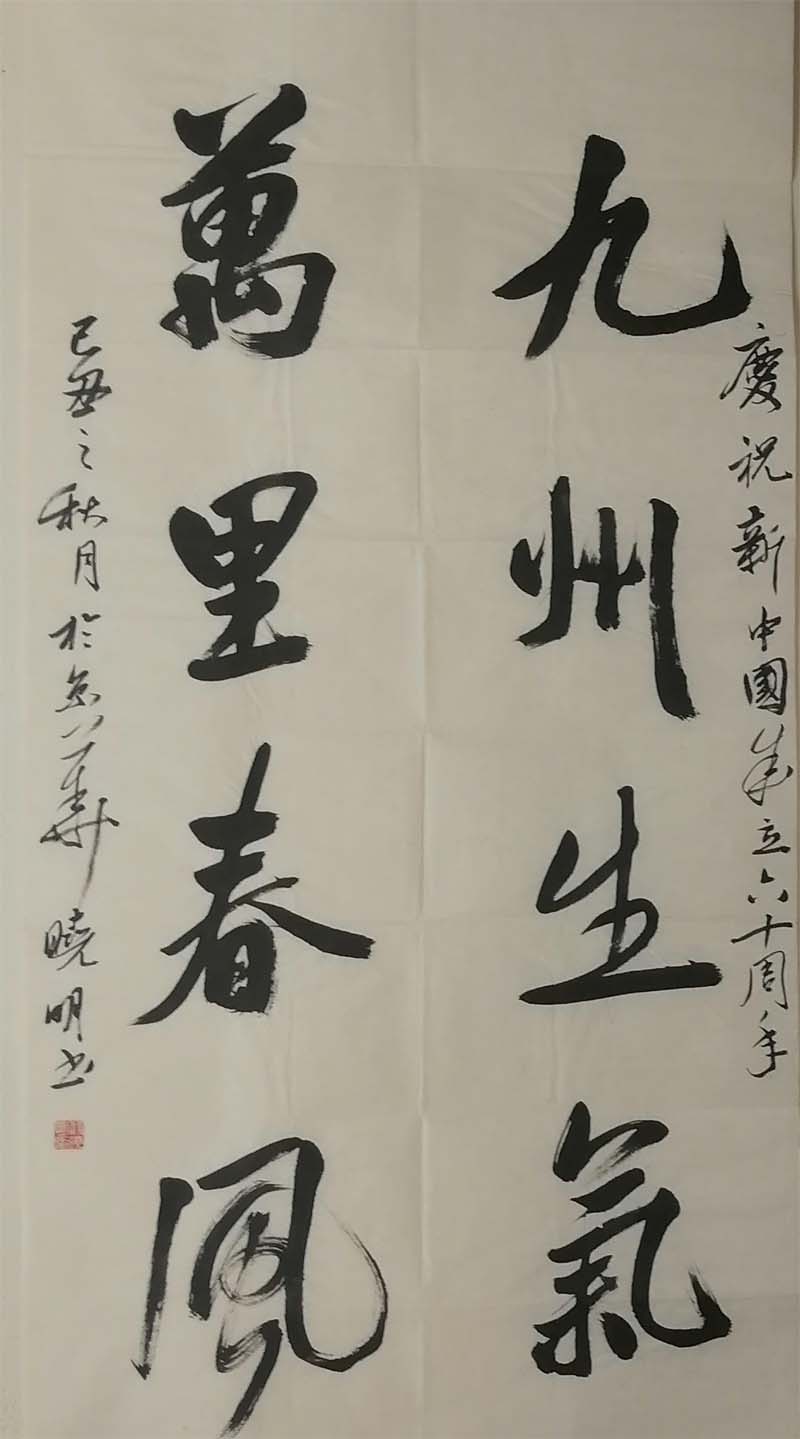 慶祝新中國成立六十周年
九州生氣
萬里春風
己丑之秋月於京華曉明书